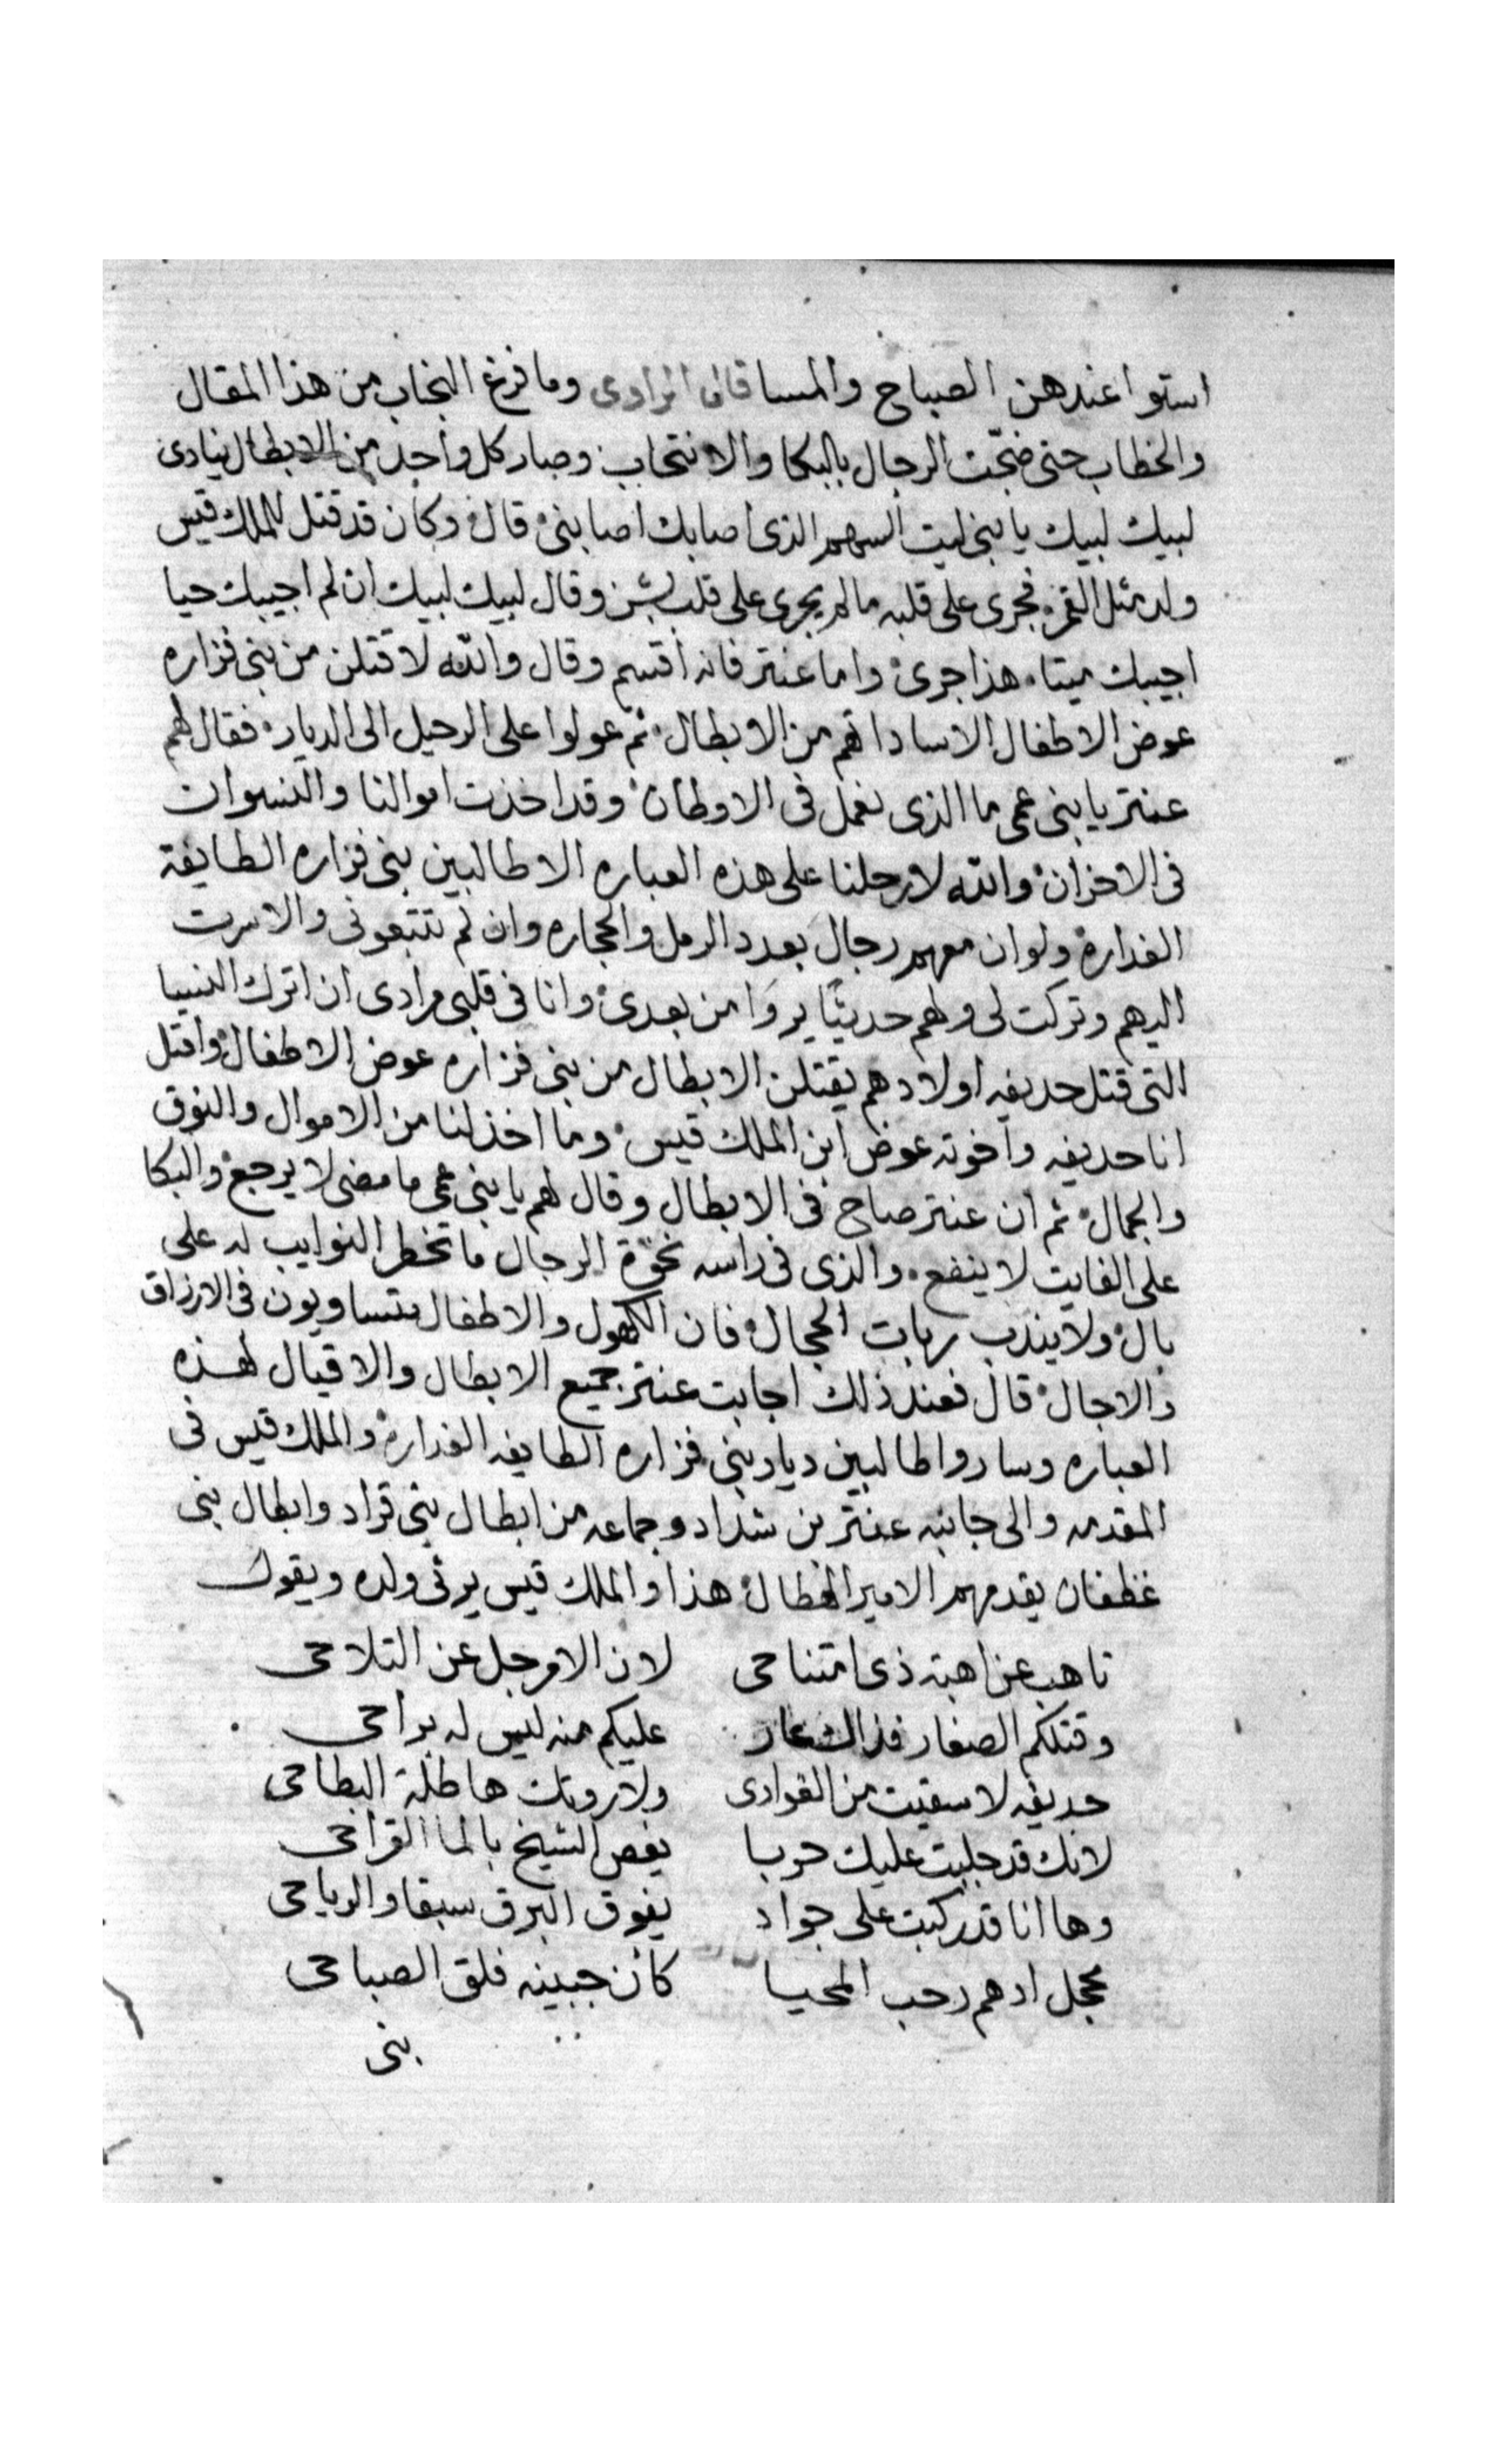 استوا عندهن الصباح والمسا قال الراوى وما فرغ النجاب من هذا المقال
والخطاب حتى ضجّت الرجال بالبكا والانتحاب وصار كل واحد من الابطال ينادى
لبيك لبيك يا بنى ليت السهم الذى اصابك اصابنى قال وكان قد قتل للملك قيس
ولد مثل القمر فجرى على قلبه ما لم يجرى على قلب بشر وقال لبيك لبيك ان لم اجيبك حيا
اجيبك ميتا هذا جرى واما عنتر فانه اقسم وقال والله لاقتلن من بنى فزاره
عوض الاطفال الاساداتهم من الابطال ثم عولوا على الرحيل الى الديار فقال لهم
عنتر يا بنى عمى ما الذى نعمل فى الاوطان وقد اخذت اموالنا والنسوان
فى الاحزان والله لا رحلنا على هذه العباره الا طالبين بنى فزاره الطايفة
الغداره ولو ان معهم رجال بعدد الرمل والحجاره وان لم تتبعونى والا سرت
اليهم وتركت لى ولهم حديثًا يروا من بعدى وانا فى قلبى مرادى ان اترك النسا
التى قتل حديفه اولادهم يقتلن الابطال من بنى فزاره عوض الاطفال واقتل
انا حديفه واخوته عوض ابن الملك قيس وما اخذ لنا من الاموال والنوق
والجمال ثم ان عنتر صاح فى الابطال وقال لهم يا بنى عمى ما مضى لا يرجع والبكا
على الفايت لا ينفع والذى فى راسه نخوة الرجال ما تخطر النوايب له على
بال ولا يندب ربات الحجال فان الكهول والاطفال متساويون فى الارزاق
والاجال قال فعند ذلك اجابت عنتر جميع الابطال والاقيال لهذه
العباره وساروا طالبين ديار بنى فزاره الطايفه الغداره والملك قيس فى
المقدمه والى جانبه عنتر بن شداد وجماعه من ابطال بنى قراد وابطال بنى
غطفان يقدمهم الامير الهطال هذا والملك قيس يرثى ولده ويقول
تاهب عن اهبة ذى امتناحى لان الامر جل عن التلاحى
وقتلكم الصغار فذاك عار عليكم منه ليس له براحى
حديفه لا سقيت من الغوادى ولا روتك هاطلة البطاحى
لانك قد جلبت عليك حربا يغص الشيخ بالما القراحى
وها انا قد ركبت على جواد يفوق البرق سبقا والرياحى
محجل ادهم رحب المحيا كان جبينه فلق الصباحى
بنى